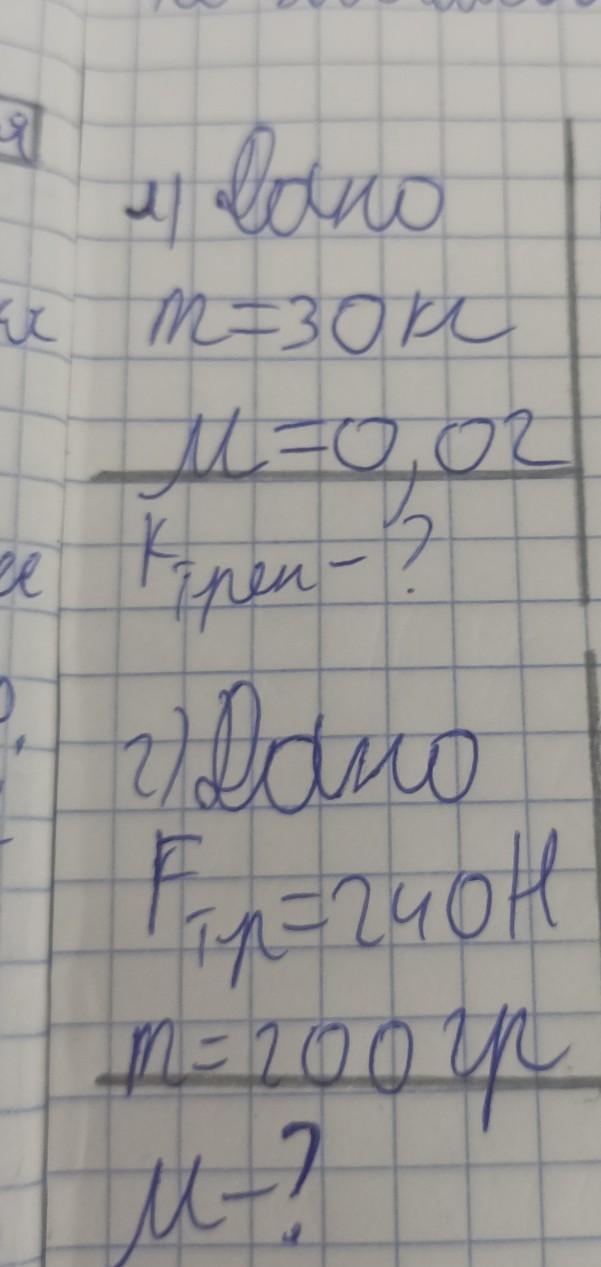 1) Дано
m=30 кг
μ=0,02
Fтрен-?
2) Дано
Fтр=240Н
m=200 гр
μ-?